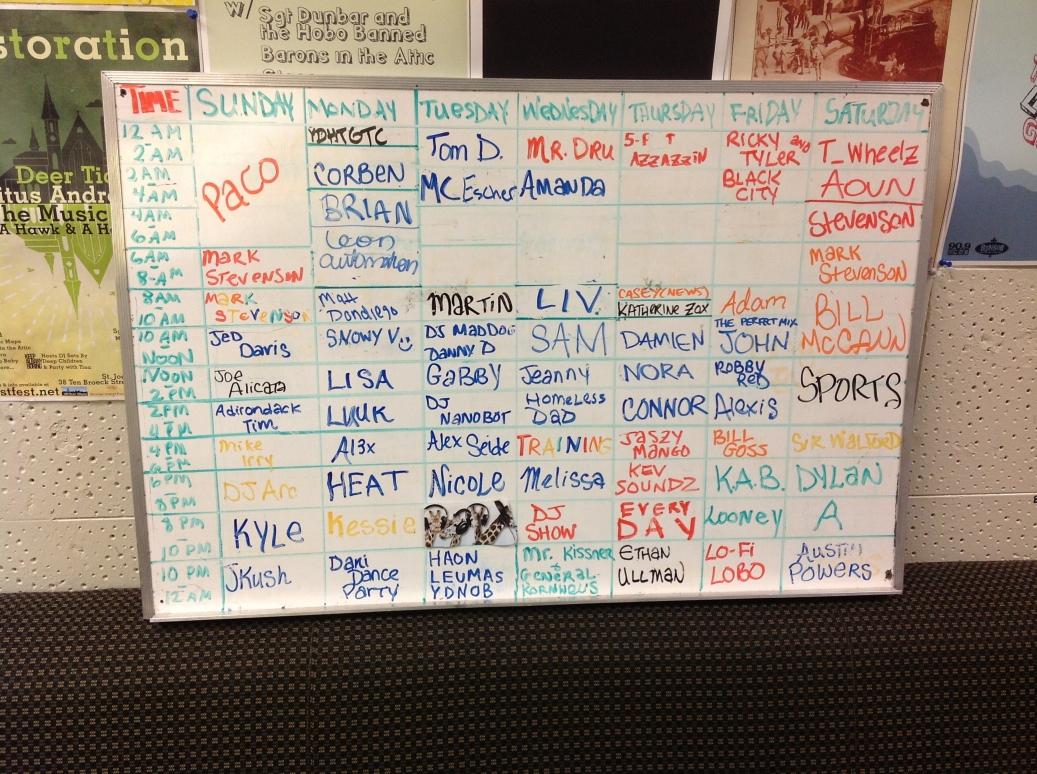 storation
Deer Tic
itus Andro
he Music
A Hawk & A H
38 Ten Broeck Str
stfest.net
w/ Sgt Dunbar and
the Hobo Banned
Barons in the Attic
90.9
TIME SUNDAY MONDAY TUESDAY WEDNESDAY THURSDAY FRIDAY SATURDAY
12 AM
2 AM
YDHTGTC
TOM D.
MR. DRU
AZZAZZIN
RICKY and
TYLER
T_Wheelz
2AM
4AM
PACO
CORBEN
MC Escher
AMANDA
BLACK
CITY
AOUN
4AM
6AM
BRIAN
STEVENSON
6AM
8-AM
MARK
STEVENSON
Leon
automaton
MARK
Stevenson
8AM
10 AM
MARK
STEVENSON
Matt
Dondiego
MARTIN
LIV.
CASEY(NEWS)
KATHERINE ZOX
Adam
BILL
McCANN
10 AM
NOON
JED
Davis
SNOWY V
DJ MADDOG
DANNY D
SAM
DAMIEN
THE PERFECT MIX
JOHN
NOON
2PM
Joe
Alicata
LISA
GaBBY
Jeanny
NORA
ROBBY
RED
SPORTS
2PM
4PM
Adirondack
Tim
LUUK
DJ
NANOBOT
HOMELESS
DAD
CONNOR
Alexis
4PM
6PM
Mike
Irry
Al3x
Alex Seide
TRAINING
JASZY
MANGO
BILL
GOSS
SIR WALFORD
6PM
8PM
DJ Arc
HEAT
NICOLE
Melissa
KEV
SOUNDZ
K.A.B.
DYLAN
8PM
10 PM
KYLE
Kessie
DJ
SHOW
EVERY
DAY
LOONEY
A
10 PM
12 AM
JKush
Dani
Dance
Party
HAON
LEUMAS
YDNOB
Mr. Kissner
+
GENERAL
KORNHEUS
ETHAN
ULLMAN
LO-FI
LOBO
AUSTIN
POWERS